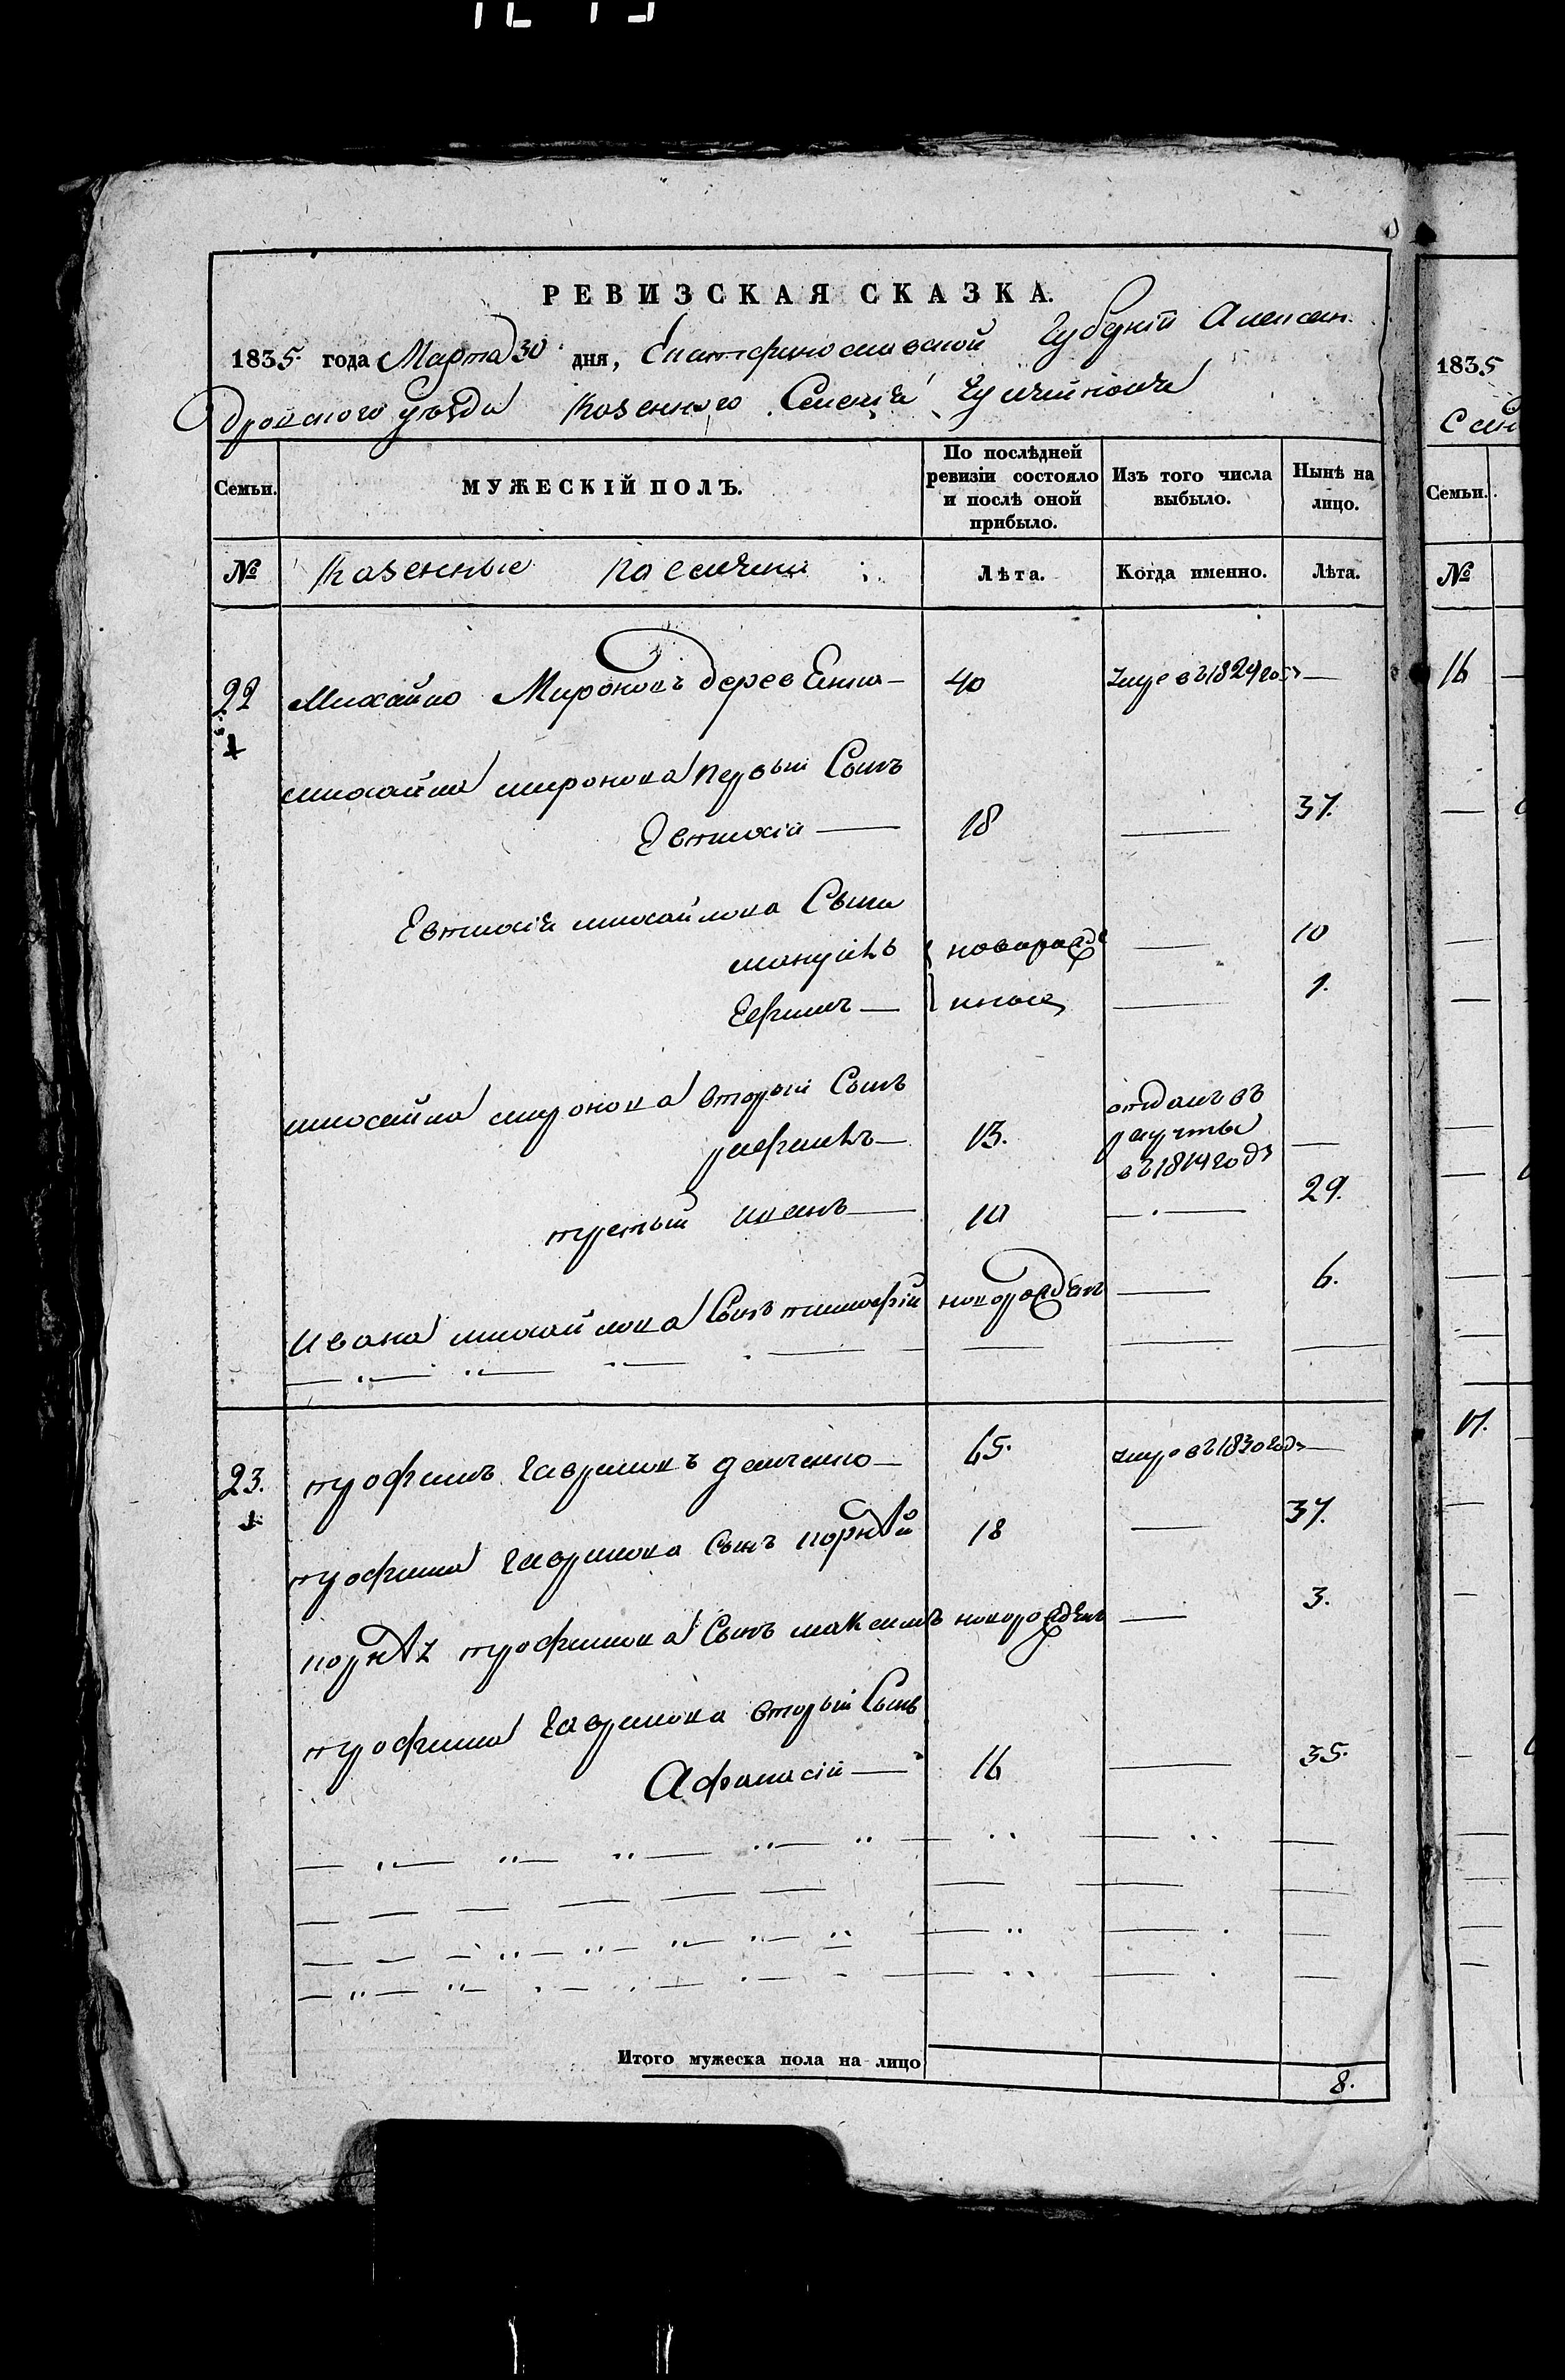 РЕВИЗСКАЯ СКАЗКА.
1835 года Марта 30 дня, Екатеринославской Губерніи Алексан
дровского уезда казенного Селенія
Семьи. МУЖЕСКІЙ ПОЛЪ. По послѣдней ревизіи состояло и послѣ оной прибыло. Изъ того числа выбыло. Нынѣ на лицо.
№ казенные Лѣта. Когда именно. Лѣта.
22 Михайло Мироновъ 40 умре въ 1824 годѣ —
михайла миронова первый Сынъ
Евтихій — 18 — 37.
Евтихія михайлова Сыны
мануилъ новорожде — 10
Ефимъ — нные — 1.
михайла миронова вторый Сынъ отданъ въ
13. рекруты
въ 1814 годѣ —
третый иванъ — 10 — 29.
Ивана михайлова Сынъ тимофей новорожденъ — 6.
23. трофимъ гавриловъ демченко — 65. умре въ 1830 годѣ —
трофима гаврилова Сынъ корнѣй 18 — 37.
корнѣя трофимова Сынъ максимъ новорожденъ — 3.
трофима гаврилова вторый Сынъ
Афанасій — 16 — 35.
Итого мужеска пола на лицо 8.
1835
Семьи.
№
16
17.